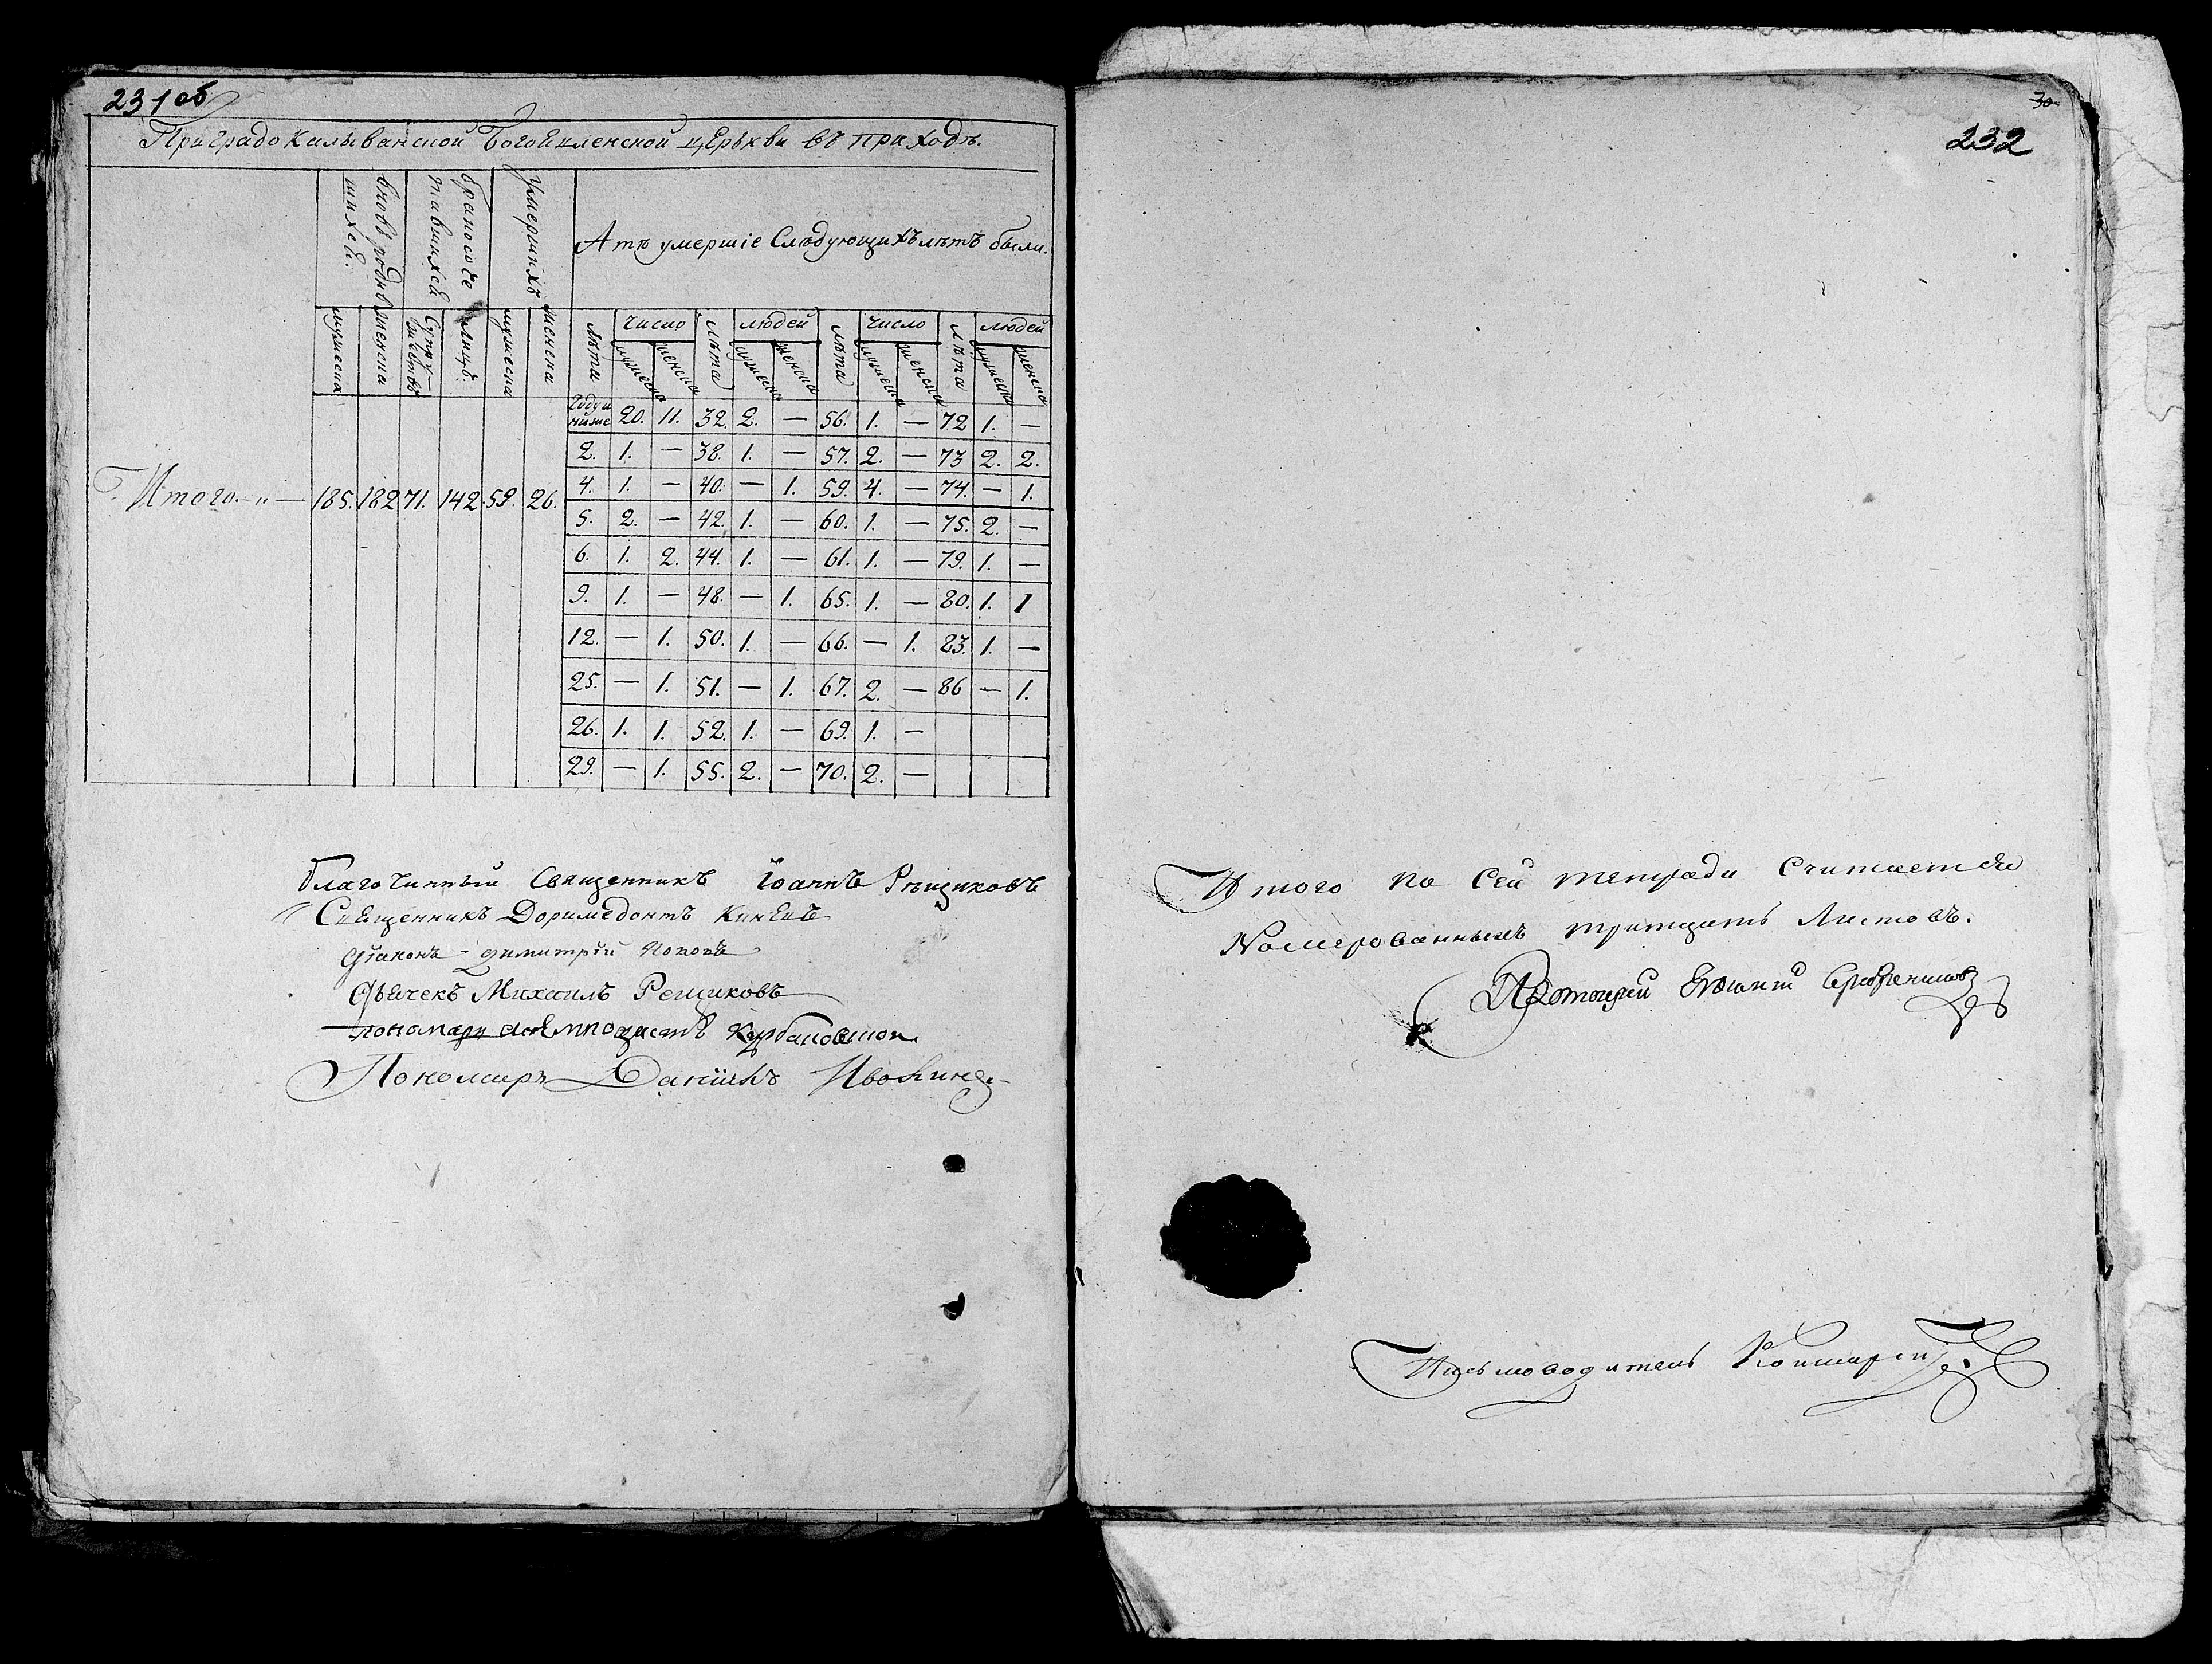 231 об
Приградо Колыванской Богоявленской церькви въ приходѣ.
вновь родив
шихся.
бракосоче
тавшихся
Умершихъ
А тѣ умершіе Слѣдующихъ лѣтъ были.
мужеска
женска
Супру-
жествъ
лицъ.
мужеска
женска
лѣта число лѣта людей лѣта число лѣта людей
мужеска женска мужеска женска мужеска женска мужеска женска
Году и ниже 20. 11. 32. 2. — 56. 1. — 72 1. —
2. 1. — 38. 1. — 57. 2. — 73 2. 2.
4. 1. — 40. — 1. 59. 4. — 74. — 1.
Итого. — " — 185. 182 71. 142. 59. 26.
5. 2. — 42. 1. — 60. 1. — 75. 2. —
6. 1. 2. 44. 1. — 61. 1. — 79. 1. —
9. 1. — 48. — 1. 65. 1. — 80. 1. 1
12. — 1. 50. 1. — 66. — 1. 83. 1. —
25. — 1. 51. — 1. 67. 2. — 86 — 1.
26. 1. 1. 52. 1. — 69. 1. —
29. — 1. 55. 2. — 70. 2. —
благочинный Священникъ Іоаннъ Рѣщиковъ
Священникъ Доримедонтъ
діаконъ Димитрій Поповъ
Дьячекъ Михаилъ Рещиковъ
пономарь
Пономарь Даніилъ
30
232
Итого по сей тетради Считается
Номерованныхъ тритцать Листовъ.
Протоиерей
Письмоводитель